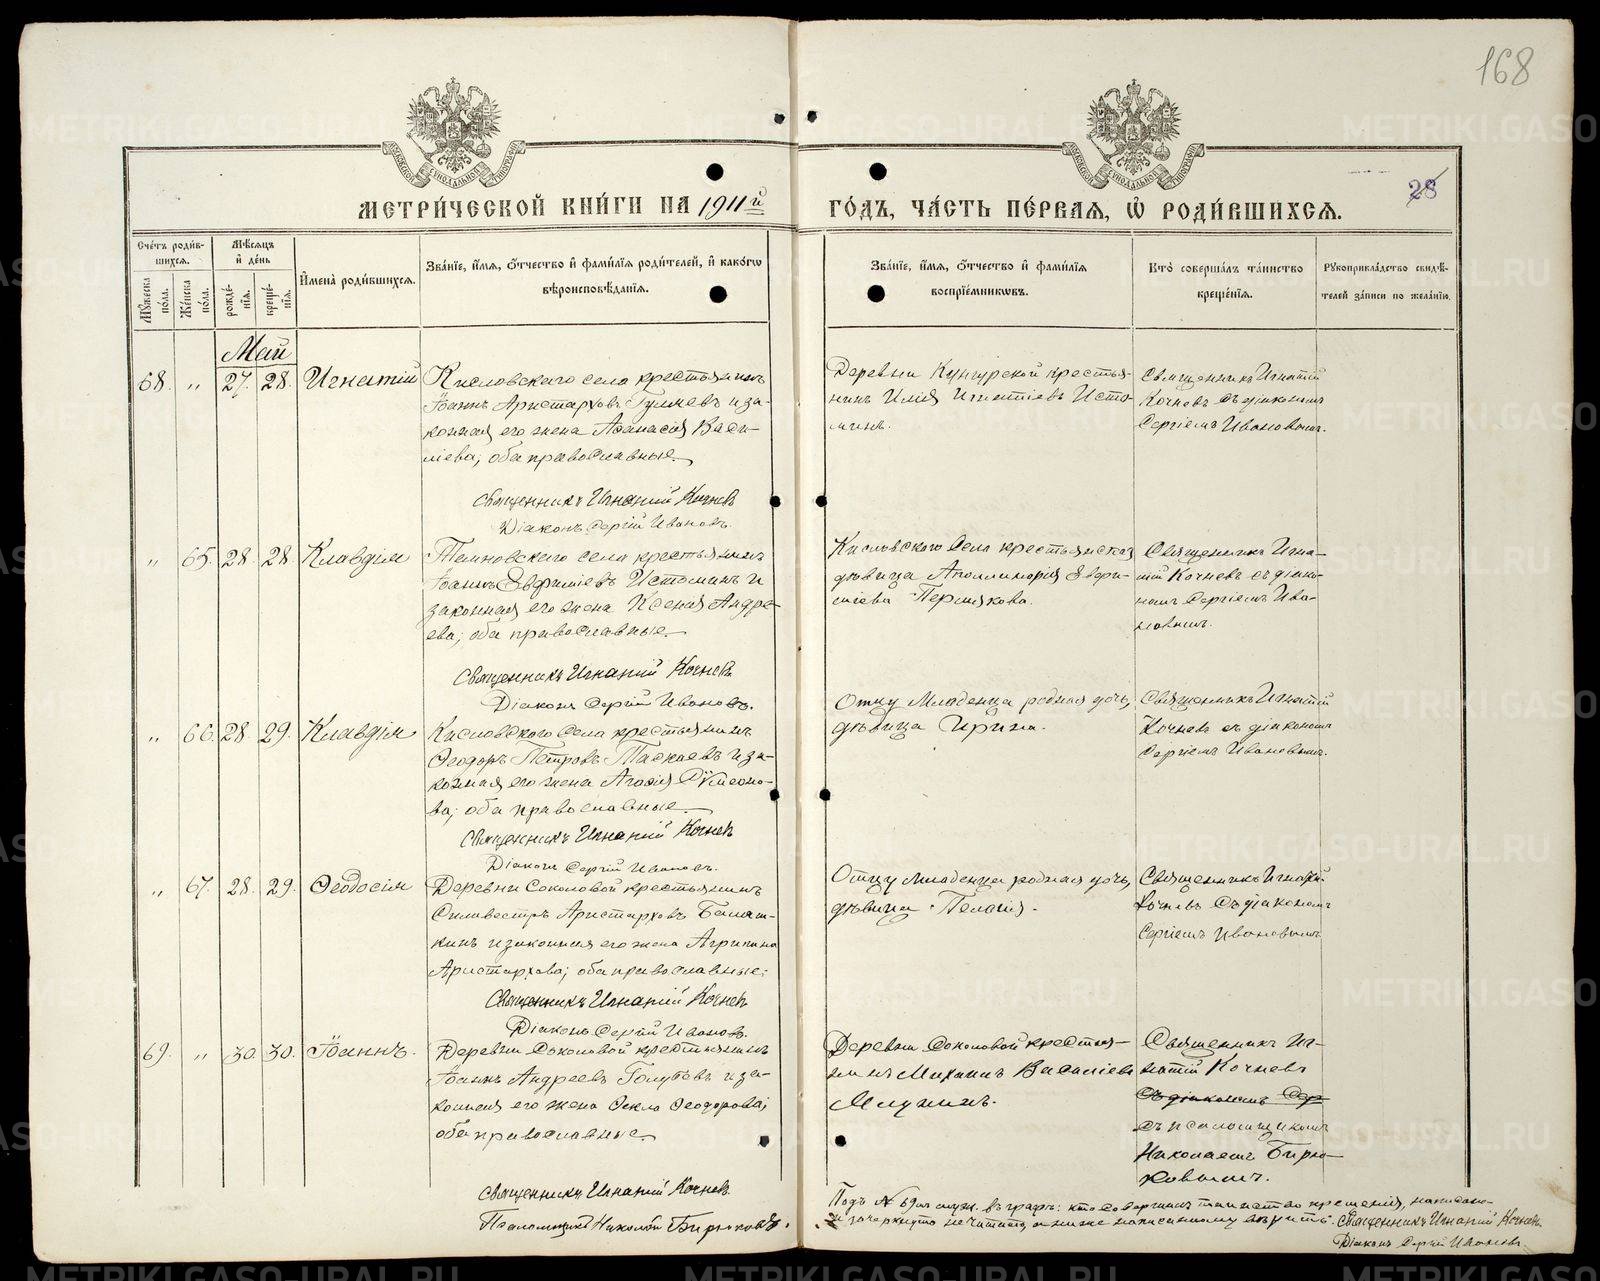 168
28
МЕТРИ́ЧЕСКОЙ КНИ́ГИ НА 1911й
ГО́ДЪ, ЧА́СТЬ ПЕ́РВАЯ, Ѡ҆ РОДИ́ВШИХСЯ.
Сче́тъ роди́в-
шихся.
Мѣ́сяцъ
и҆ де́нь
Мꙋ́жеска по́ла.
Же́нска по́ла.
рожде́-
нїя.
креще́-
нїя.
И҆мена̀ роди́вшихся.
Зва́нїе, и҆́мя, ѻ҆́тчество и҆ фами́лїя роди́телей, и҆ како́гѡ
вѣроисповѣ́данїя.
Зва́нїе, и҆́мя, ѻ҆́тчество и҆ фами́лїя
воспрїе́мникѡвъ.
Кто̀ соверша́лъ та́инство
креще́нїя.
Рꙋкоприкла́дство свидѣ́-
телей за́писи по жела́нїю.
Май
68. " 27. 28. Игнатій
Кисловскаго села крестьянинъ
Іоаннъ Аристарховъ Гуляевъ и за-
конная его жена Аѳанасія Васи-
ліева; оба православные.
Священникъ Игнатій Кочневъ
Діаконъ Сергій Ивановъ.
Деревни Кунгурской крестья-
нинъ Илія Игнатіевъ Исто-
минъ.
Священникъ Игнатій
Кочневъ съ діакономъ
Сергіемъ Ивановымъ.
" 65. 28. 28. Клавдія
Темновскаго села крестьянинъ
Іоаннъ Евфиміевъ Истоминъ и
законная его жена Ксенія Андре-
ева; оба православные.
Священникъ Игнатій Кочневъ
Діаконъ Сергій Ивановъ.
Кисловского села крестьянская
дѣвица Аполлинарія
Пермякова.
Священникъ Игна-
тій Кочневъ съ діако-
номъ Сергіемъ Ива-
новымъ.
" 66. 28. 29. Клавдія
Кисловского села крестьянинъ
Ѳеодоръ Петровъ Паскаевъ и за-
конная его жена Агафія Сѵмеоно-
ва; оба православные.
Священникъ Игнатій Кочневъ
Діаконъ Сергій Ивановъ.
Отцу младенца родная дочь,
дѣвица Ирина.
Священникъ Игнатій
Кочневъ съ діакономъ
Сергіемъ Ивановымъ.
" 67. 28. 29. Ѳеодосія
Деревни Соколовой крестьянинъ
Силивестръ Аристарховъ Балаш-
кинъ и законная его жена Агрипина
Аристархова; оба православные.
Священникъ Игнатій Кочневъ
Діаконъ Сергій Ивановъ.
Отцу младенца родная дочь,
дѣвица Пелагія.
Священникъ Игнатій
Кочневъ съ діакономъ
Сергіемъ Ивановымъ
69. " 30. 30. Іоаннъ.
Деревни Соколовой крестьянинъ
Іоаннъ Андреевъ Голубевъ и за-
конная его жена Ѳекла Ѳеодорова;
оба православные.
Священникъ Игнатій Кочневъ.
Псаломщикъ Николай Бирюковъ.
Деревни Соколовой крестья-
нинъ Михаилъ Василіевъ
Священникъ Иг-
натій Кочневъ
съ діакономъ Сер
съ псаломщикомъ
Николаемъ Бирю-
ковымъ.
Подъ № 69 м. въ графѣ: кто совершалъ таинство крещенія, написано
и зачеркнуто не читать, а ниже написанному вѣрить. Священникъ Игнатій Кочневъ
Діаконъ Сергій Ивановъ
METRIKI.GASO-URAL.RU